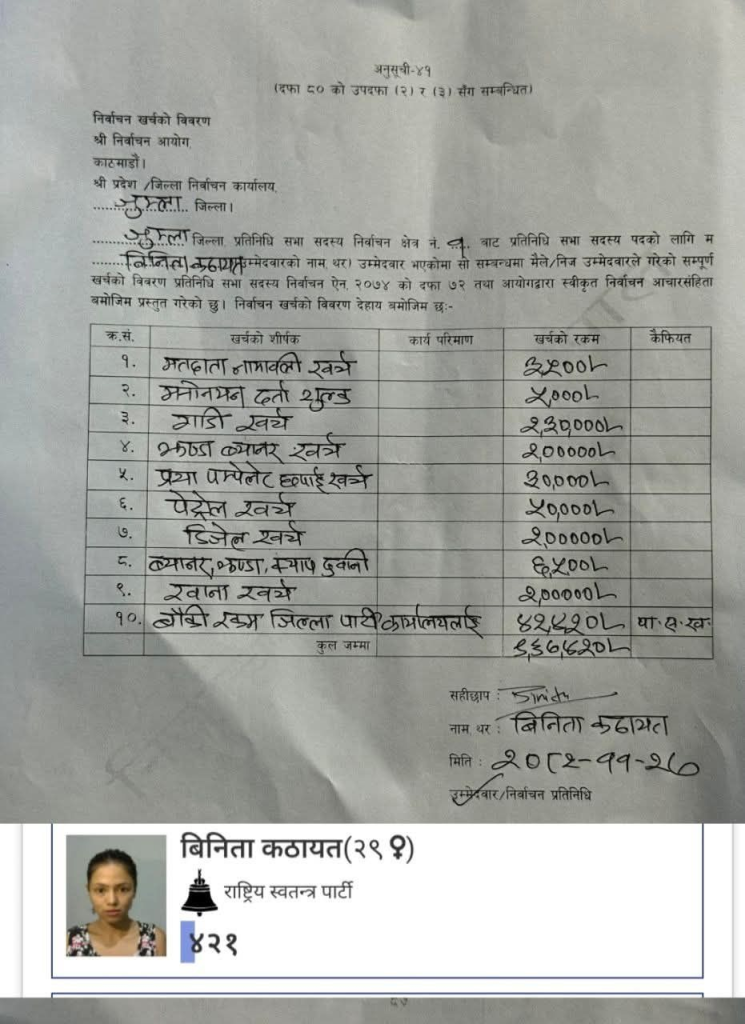 अनुसूची-४१
(दफा ८० को उपदफा (२) र (३) सँग सम्बन्धित)
निर्वाचन खर्चको विवरण
श्री निर्वाचन आयोग,
काठमाडौं।
श्री प्रदेश /जिल्ला निर्वाचन कार्यालय,
जुम्ला जिल्ला।
जुम्ला जिल्ला, प्रतिनिधि सभा सदस्य निर्वाचन क्षेत्र नं. १ बाट प्रतिनिधि सभा सदस्य पदको लागि म
बिनिता कठायत (उम्मेदवारको नाम, थर) उम्मेदवार भएकोमा सो सम्बन्धमा मैले/निज उम्मेदवारले गरेको सम्पूर्ण
खर्चको विवरण प्रतिनिधि सभा सदस्य निर्वाचन ऐन, २०७४ को दफा ७२ तथा आयोगद्वारा स्वीकृत निर्वाचन आचारसंहिता
बमोजिम प्रस्तुत गरेको छु। निर्वाचन खर्चको विवरण देहाय बमोजिम छः-
क्र.सं. खर्चको शीर्षक कार्य परिमाण खर्चको रकम कैफियत
१. मतदाता नामावली खर्च ३५००।-
२. मनोनयन दर्ता शुल्क ५,०००।-
३. गाडी खर्च २,३०,०००।-
४. झण्डा ब्यानर खर्च १०००००।-
५. पम्पलेट छपाई खर्च ३०,०००।-
६. पेट्रोल खर्च ५०,०००।-
७. डिजेल खर्च १०००००।-
८. ब्यानर, झण्डा, ढुवानी ६,५००।-
९. खाना खर्च
१०. बाँकी रकम जिल्ला पार्टी कार्यालयलाई
कुल जम्मा
सहीछाप :
नाम, थर : बिनिता कठायत
मिति : २०८२-११-२७
उम्मेदवार/निर्वाचन प्रतिनिधि
बिनिता कठायत(२९ ♀)
राष्ट्रिय स्वतन्त्र पार्टी
४२१